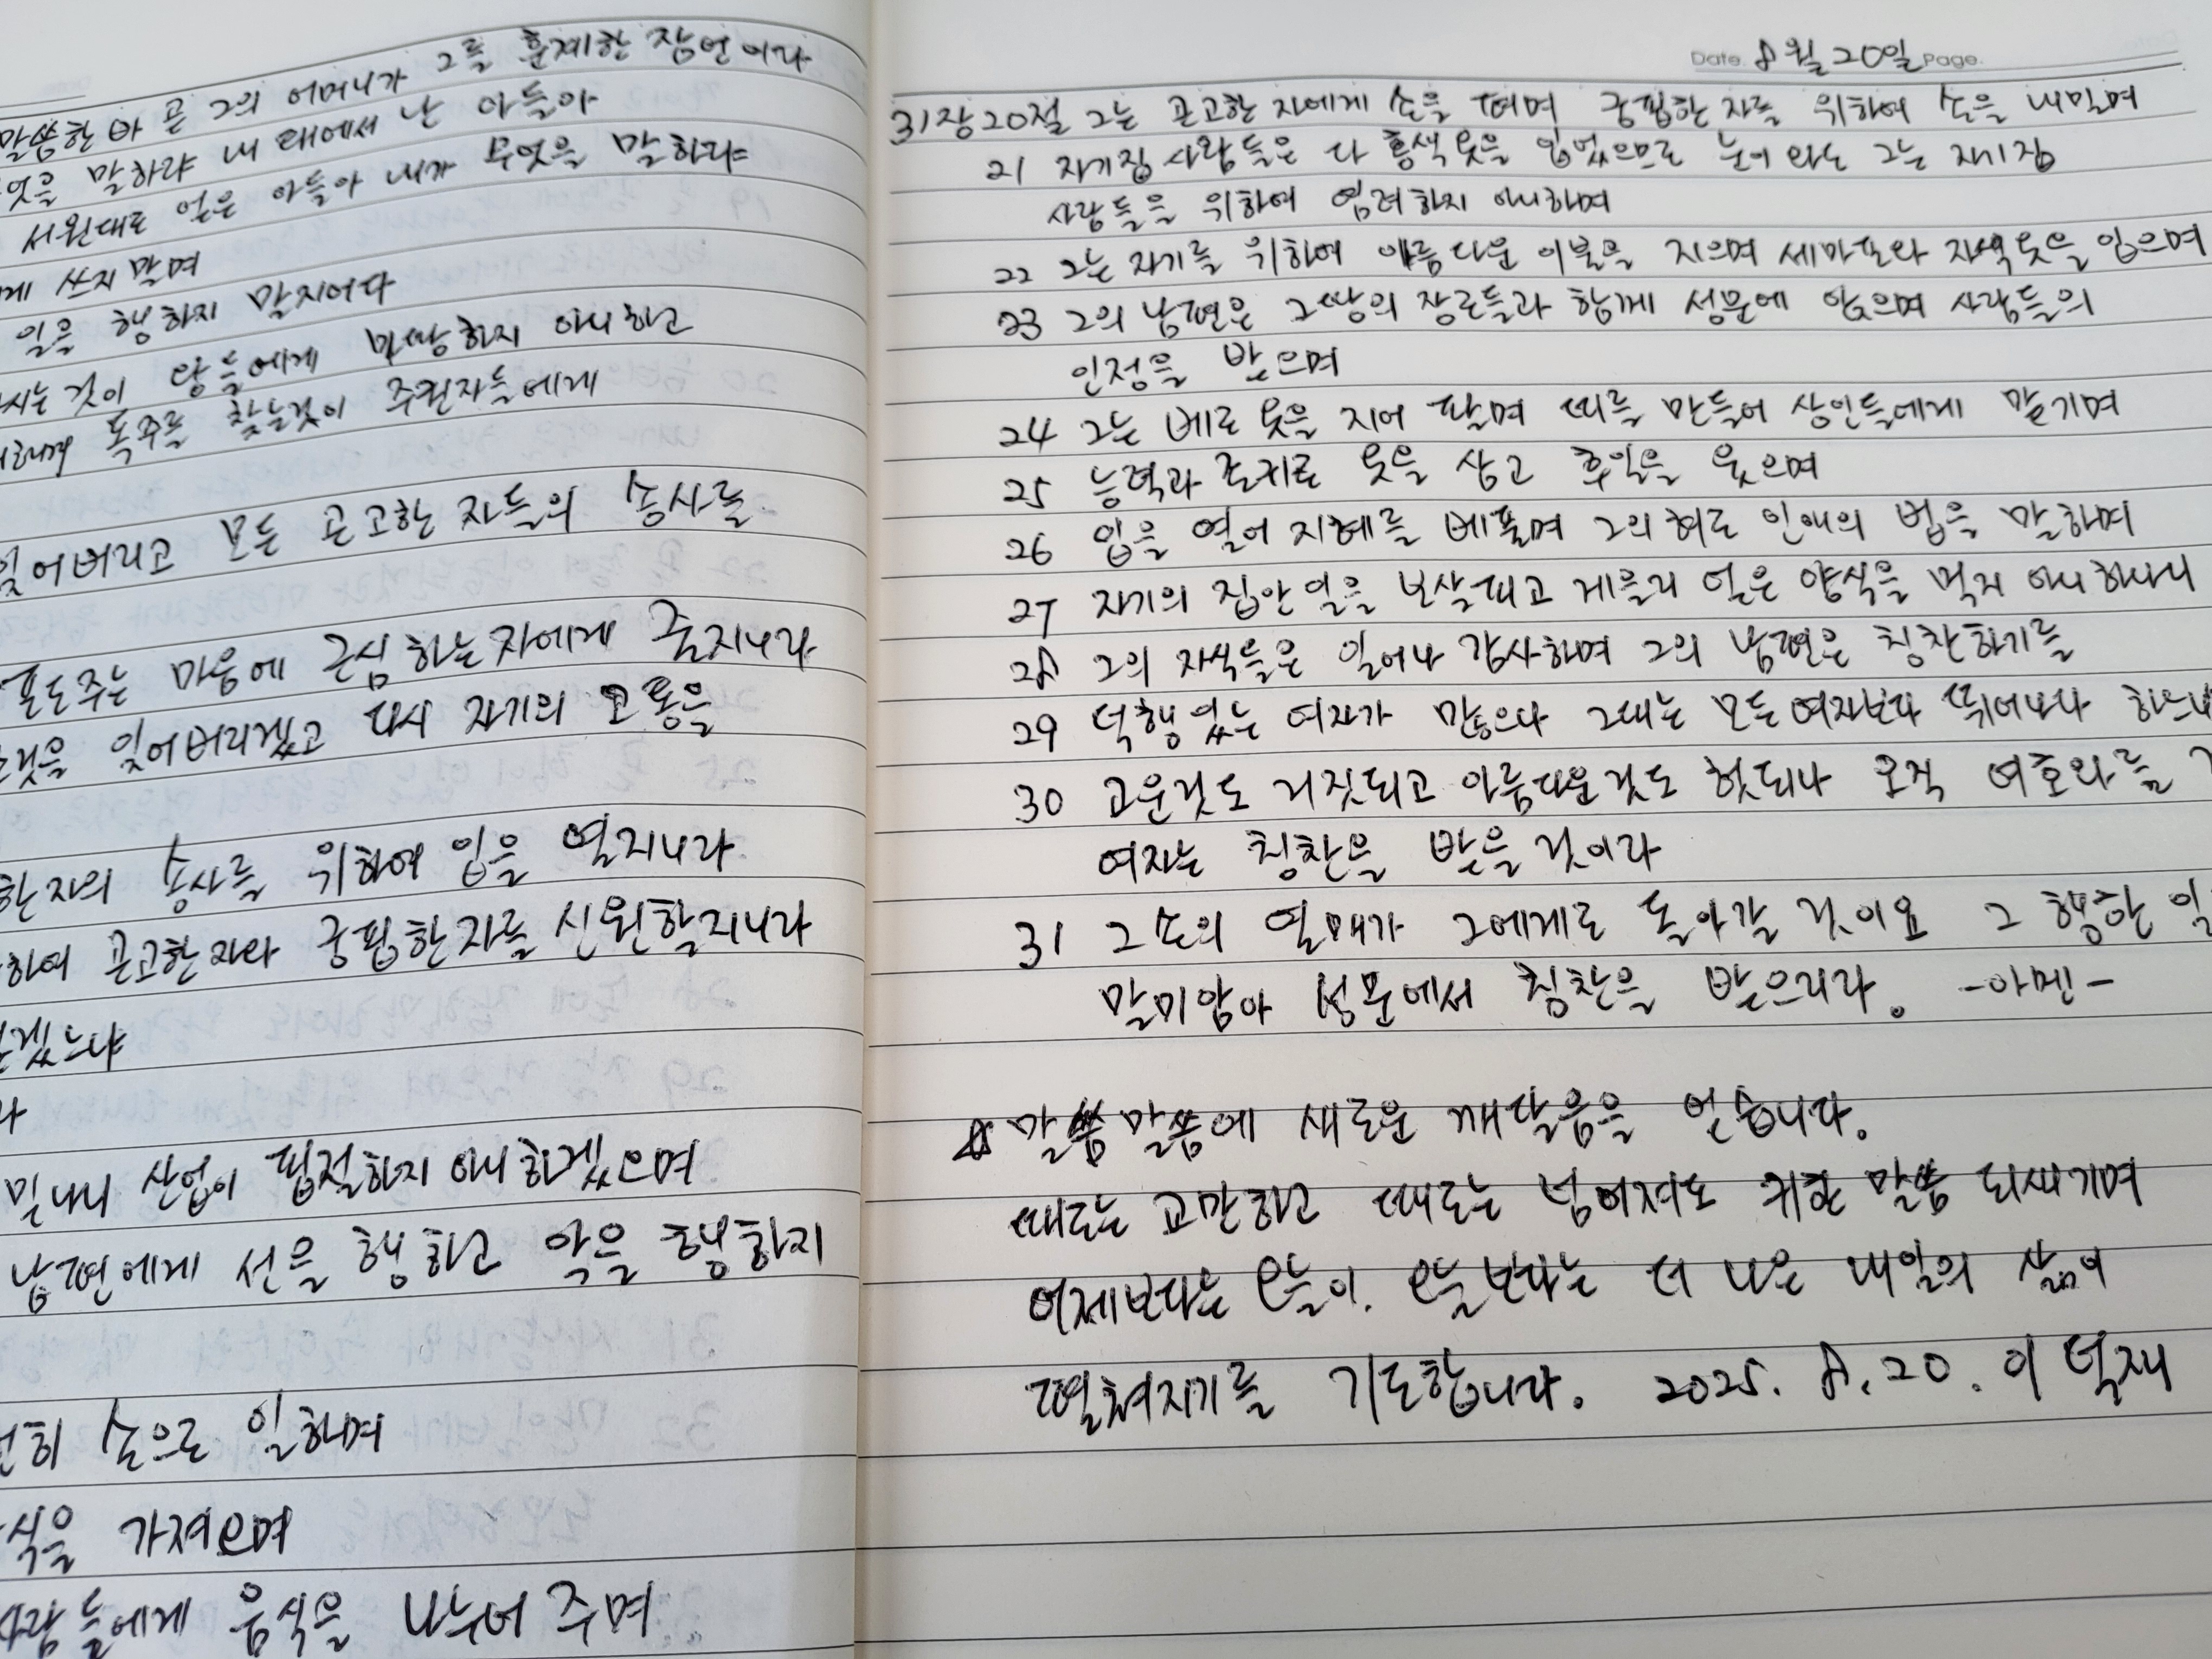 그의 어머니가 그를 훈계한 잠언이라
말씀한바 곧
말하랴 내 태에서 난 아들아
서원대로 얻은 아들아 내가 무엇을 말하랴
쓰지말며
일을 행하지 말지어다
것이 왕들에게 마땅하지 아니하고
독주를 찾는것이 주권자들에게
잊어버리고 모든 곤고한 자들의 송사를
포도주는 마음에 근심하는자에게 줄지니라
것을 잊어버리겠고 다시 자기의 고통을
한자의 송사를 위하여 입을 열지니라
하여 곤고한자와 궁핍한자를 신원할지니라
겠느냐
라
산업이 핍절하지 아니하겠으며
남편에게 선을 행하고 악을 행하지
손으로 일하며
식을 가져오며
사람들에게 음식을 나누어 주며
Date. 8월20일 Page.
31장20절 그는 곤고한 자에게 손을 펴며 궁핍한자를 위하여 손을 내밀며
21 자기집 사람들은 다 홍색옷을 입었으므로 눈이 와도 그는 자기집
사람들을 위하여 염려하지 아니하며
22 그는 자기를 위하여 아름다운 이불을 지으며 세마포와 자색옷을 입으며
23 그의 남편은 그땅의 장로들과 함께 성문에 앉으며 사람들의
인정을 받으며
24 그는 베로 옷을 지어 팔며 띠를 만들어 상인들에게 맡기며
25 능력과 존귀로 옷을 삼고 후일을 웃으며
26 입을 열어 지혜를 베풀며 그의 혀로 인애의 법을 말하며
27 자기의 집안일을 보살피고 게을리 얻은 양식을 먹지 아니하나니
28 그의 자식들은 일어나 감사하며 그의 남편은 칭찬하기를
29 덕행있는 여자가 많으나 그대는 모든여자보다 뛰어나다 하느니
30 고운것도 거짓되고 아름다운것도 헛되나 오직 여호와를
여자는 칭찬을 받을 것이라
31 그 손의 열매가 그에게로 돌아갈 것이요 그 행한 일
말미암아 성문에서 칭찬을 받으리라. -아멘-
☆ 말씀말씀에 새로운 깨달음을 얻습니다.
때로는 교만하고 때로는 넘어져도 귀한 말씀 되새기며
어제보다는 오늘이. 오늘보다는 더 나은 내일의 삶이
펼쳐지기를 기도합니다. 2025. 8. 20. 이덕재